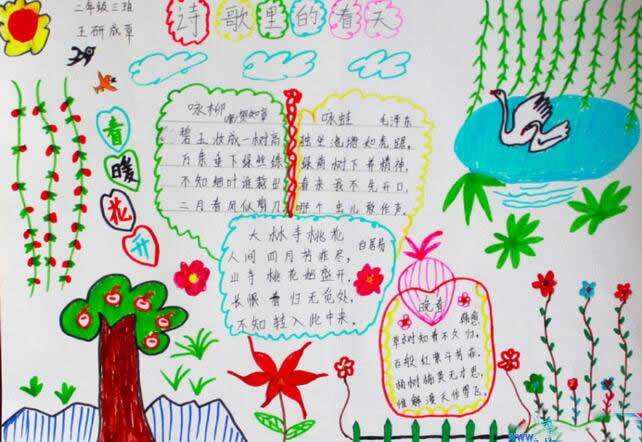 二年级三班
王研成章
诗歌里的春天
春暖花开
咏柳
贺知章
碧玉妆成一树高
万条垂下绿丝绦
不知细叶谁裁出
二月春风似剪刀
咏蛙
毛泽东
独坐池塘如虎踞,
绿荫树下养精神,
春来我不先开口,
哪个虫儿敢作声。
大林寺桃花
白居易
人间四月芳菲尽,
山寺桃花始盛开。
长恨春归无觅处,
不知转入此中来。
晚春
韩愈
草树知春不久归,
百般红紫斗芳菲。
杨树榆荚无才思,
惟解漫天作雪飞。